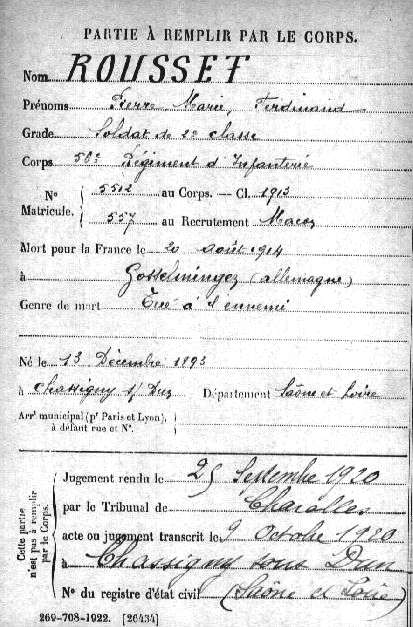 PARTIE À REMPLIR PAR LE CORPS.
Nom ROUSSET
Prénoms Pierre Marie, Ferdinand
Grade Soldat de 2e classe
Corps 56e Régiment d'Infanterie
N° Matricule. { 5502 au Corps. — Cl. 1913
557 au Recrutement Macon
Mort pour la France le 20 août 1914
à Gosselmingez (allemagne)
Genre de mort Tué à l'ennemi
Né le 13 Décembre 1893
à Chassigny s/ Dun Département Saône et Loire
Arrt municipal (pr Paris et Lyon), à défaut rue et N°.
Cette partie n'est pas à remplir par le Corps.
Jugement rendu le 25 Septembre 1920
par le Tribunal de Charolles
acte ou jugement transcrit le 9 Octobre 1920
à Chassigny sous Dun
N° du registre d'état civil (Saône et Loire)
269-708-1922. [26434]